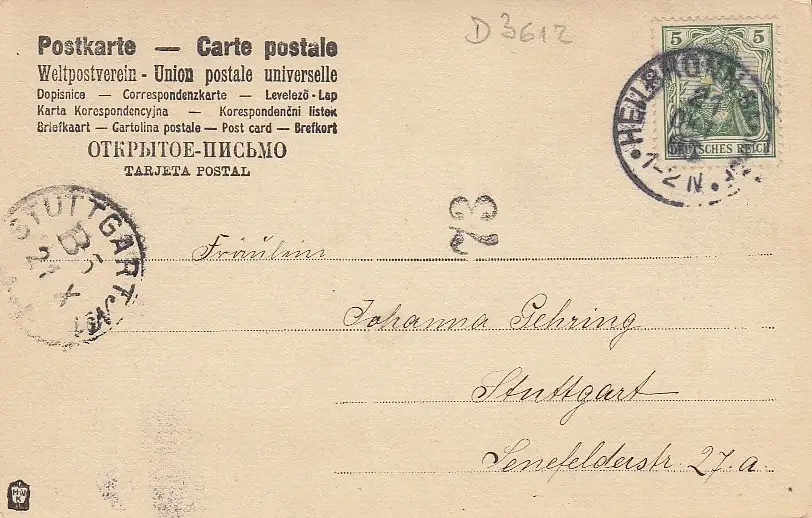 D 3612
Postkarte — Carte postale
Weltpostverein - Union postale universelle
Dopisnice — Correspondenzkarte — Levelező-Lap
Karta Korespondencyjna — Korespondenční lístek
Briefkaart — Cartolina postale — Post card — Brefkort
ОТКРЫТОЕ-ПИСЬМО
TARJETA POSTAL
5 5
DEUTSCHES REICH
HEILBRONN
21
1-2 N
STUTTGART
21 X
73
Fräulein
Johanna Gehring
Stuttgart
Senefelderstr. 27. a.